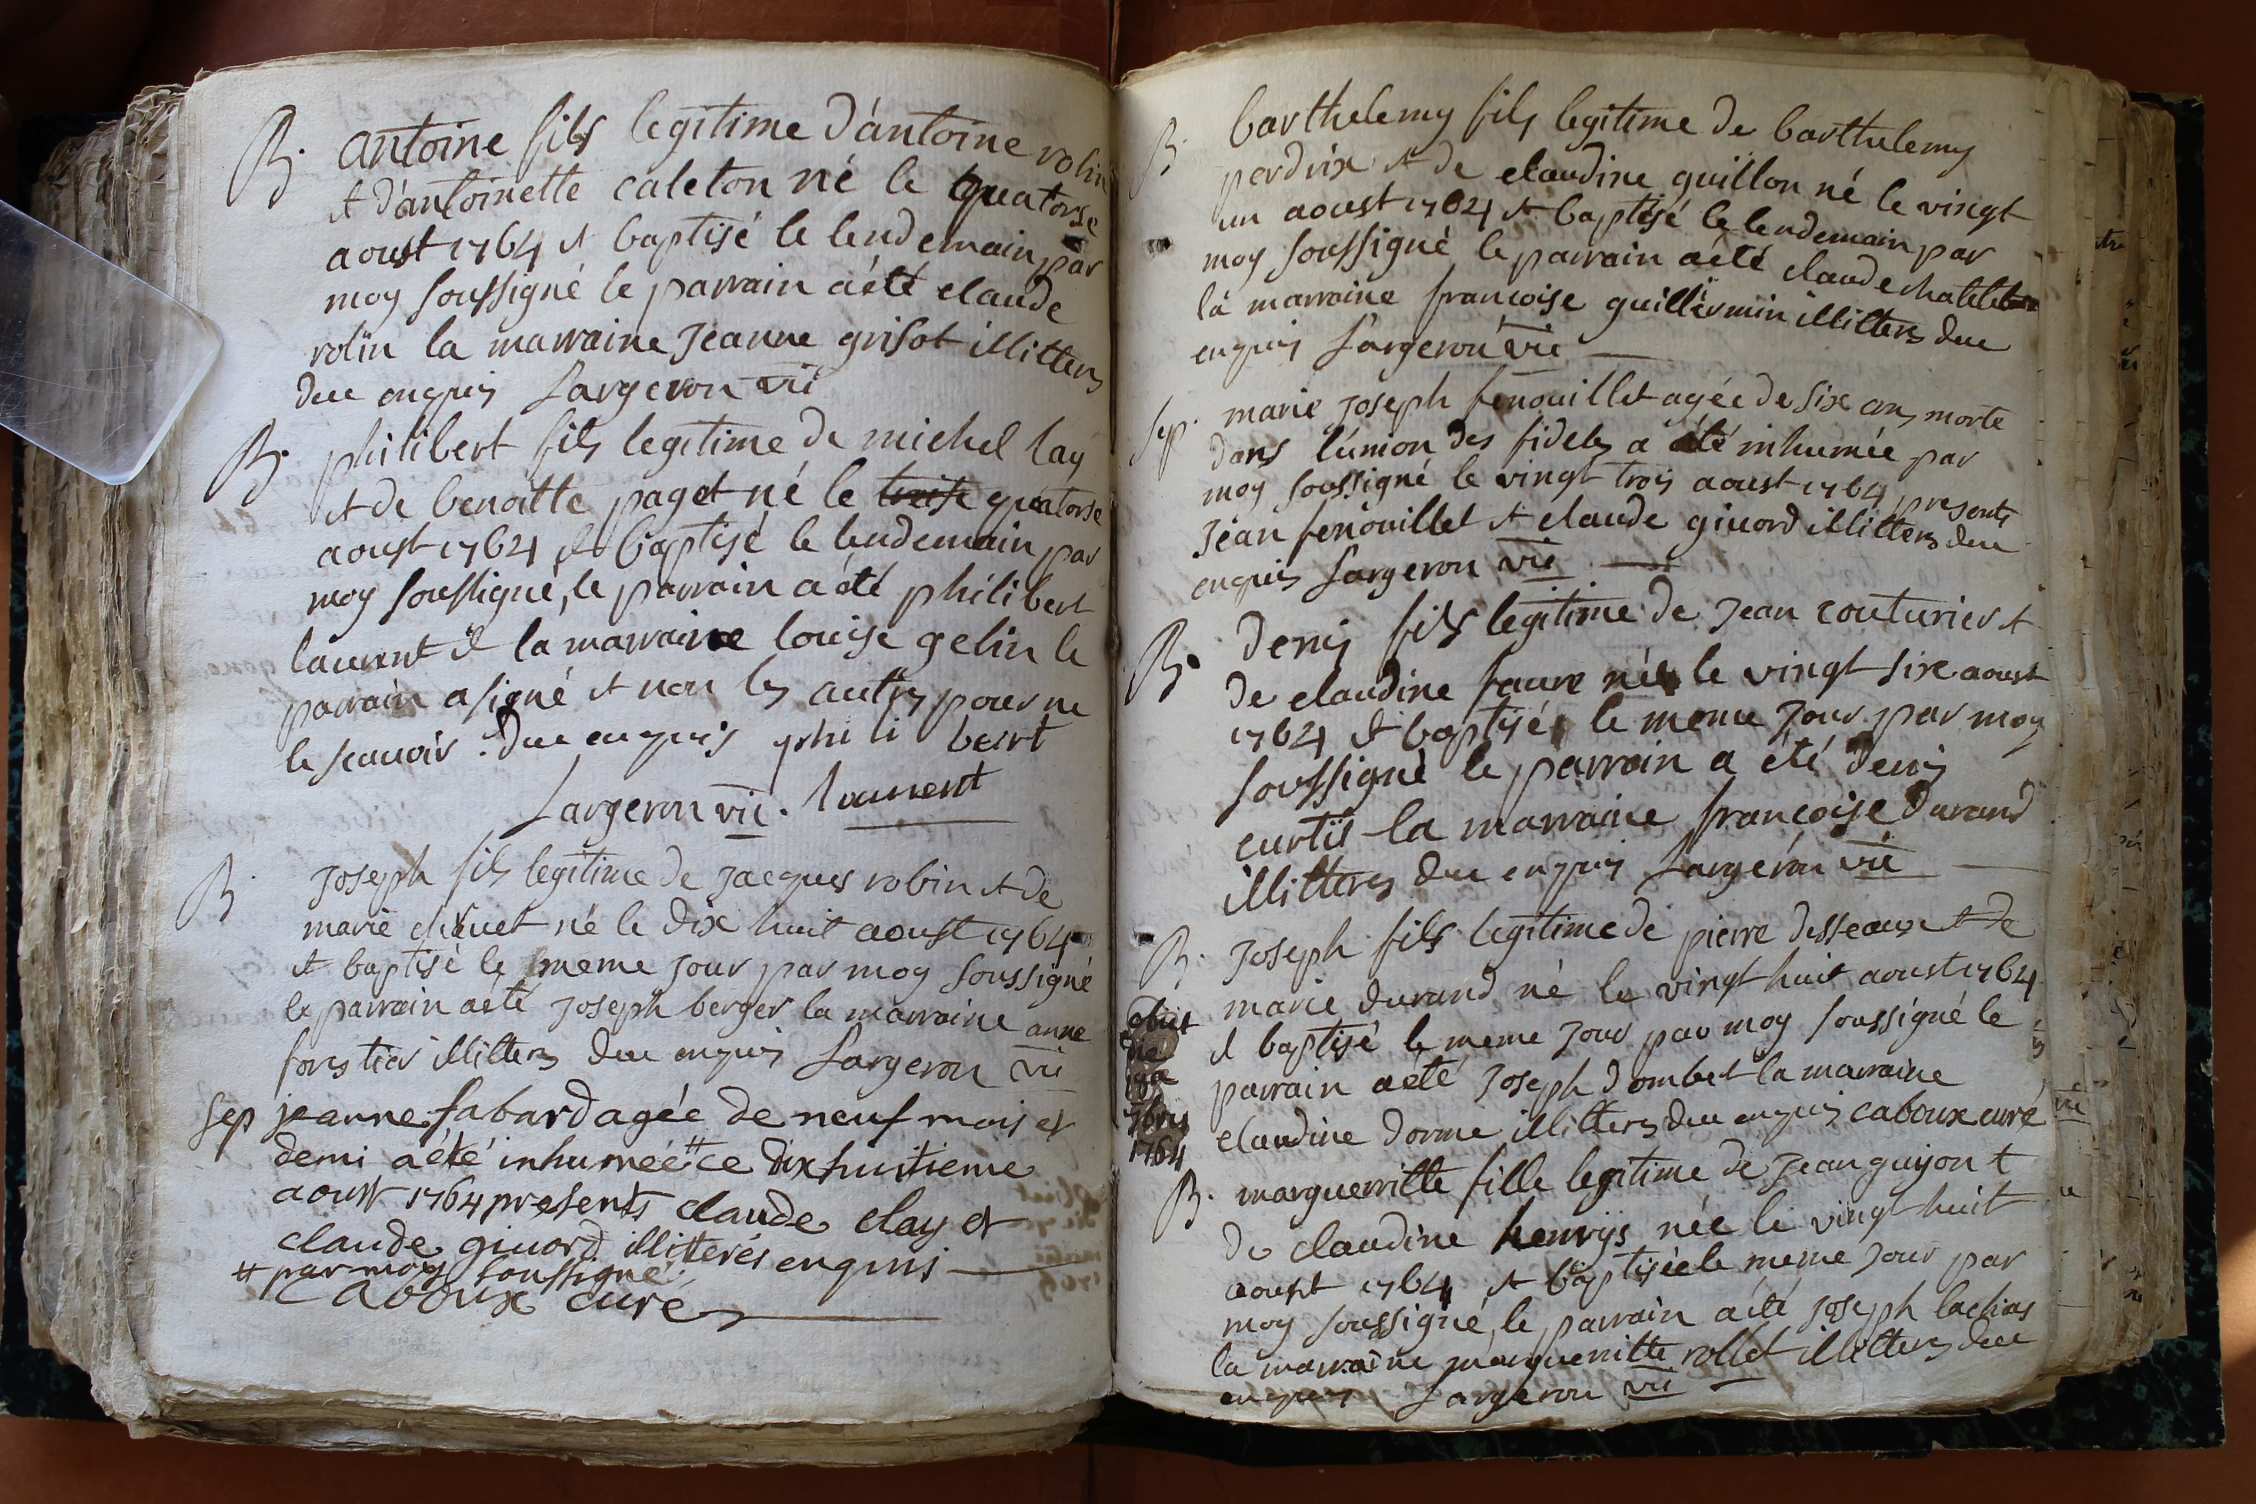 B. antoine fils legitime d'antoine rolin
et d'antoinette caleton né le quatorse
aoust 1764 et baptisé le lendemain par
moy soussigné le parrain a été claude
rolin la marraine Jeanne grisot illitters
due enquis Largeron vic
B. philibert fils legitime de michel lay
et de benoitte paget né le treise quatorse
aoust 1764 et baptisé le lendemain par
moy soussigné, le parrain a été philibert
laurent et la marraine louise gelin le
parrain a signé et non les autres pour ne
le scauoir due enquis phili bert
Largeron vic. laurent
B. Joseph fils legitime de Jacques robin et de
marie né le dix huit aoust 1764
et baptisé le meme Jour par moy soussigné
le parrain a été Joseph berger la marraine anne
forestier illitters due enquis Largeron vic
sep jeanne fabard agée de neuf mois et
demi a été inhumée # ce dix huitieme
aoust 1764 presents claude clay et
claude giuord illitterés enquis
# par moy soussigné
Caboux curé
B. barthelemy fils legitime de barthelemy
perdrix et de claudine guillon né le vingt
un aoust 1764 et baptisé le lendemain par
moy soussigné le parrain a été claude chatelet
la marraine francoise guillermin illitters due
enquis Largeron vic
sep. marie Joseph fenouillet agée de six ans morte
dans l'union des fideles a été inhumée par
moy soussigné le vingt trois aoust 1764 presents
Jean fenouillet et claude giuord illitters due
enquis Largeron vic
B. denis fils legitime de Jean couturier et
de claudine faure né le vingt six aoust
1764 et baptisé le meme Jour par moy
soussigné le parrain a été denis
curtis la marraine francoise durand
illitters due enquis Largeron vic
B. Joseph fils legitime de pierre desseaux et de
marie durand né le vingt huit aoust 1764
et baptisé le meme Jour par moy soussigné le
parrain a été Joseph dombet la marraine
claudine dorme illitters due enquis caboux curé
obiit
die
7bris
1764
B. marguerritte fille legitime de Jean guyon et
de claudine henrys née le vingt huit
aoust 1764 et baptisée le meme Jour par
moy soussigné, le parrain a été Joseph lachas
la marraine marguerritte rollet illitters due
enquis Largeron vic